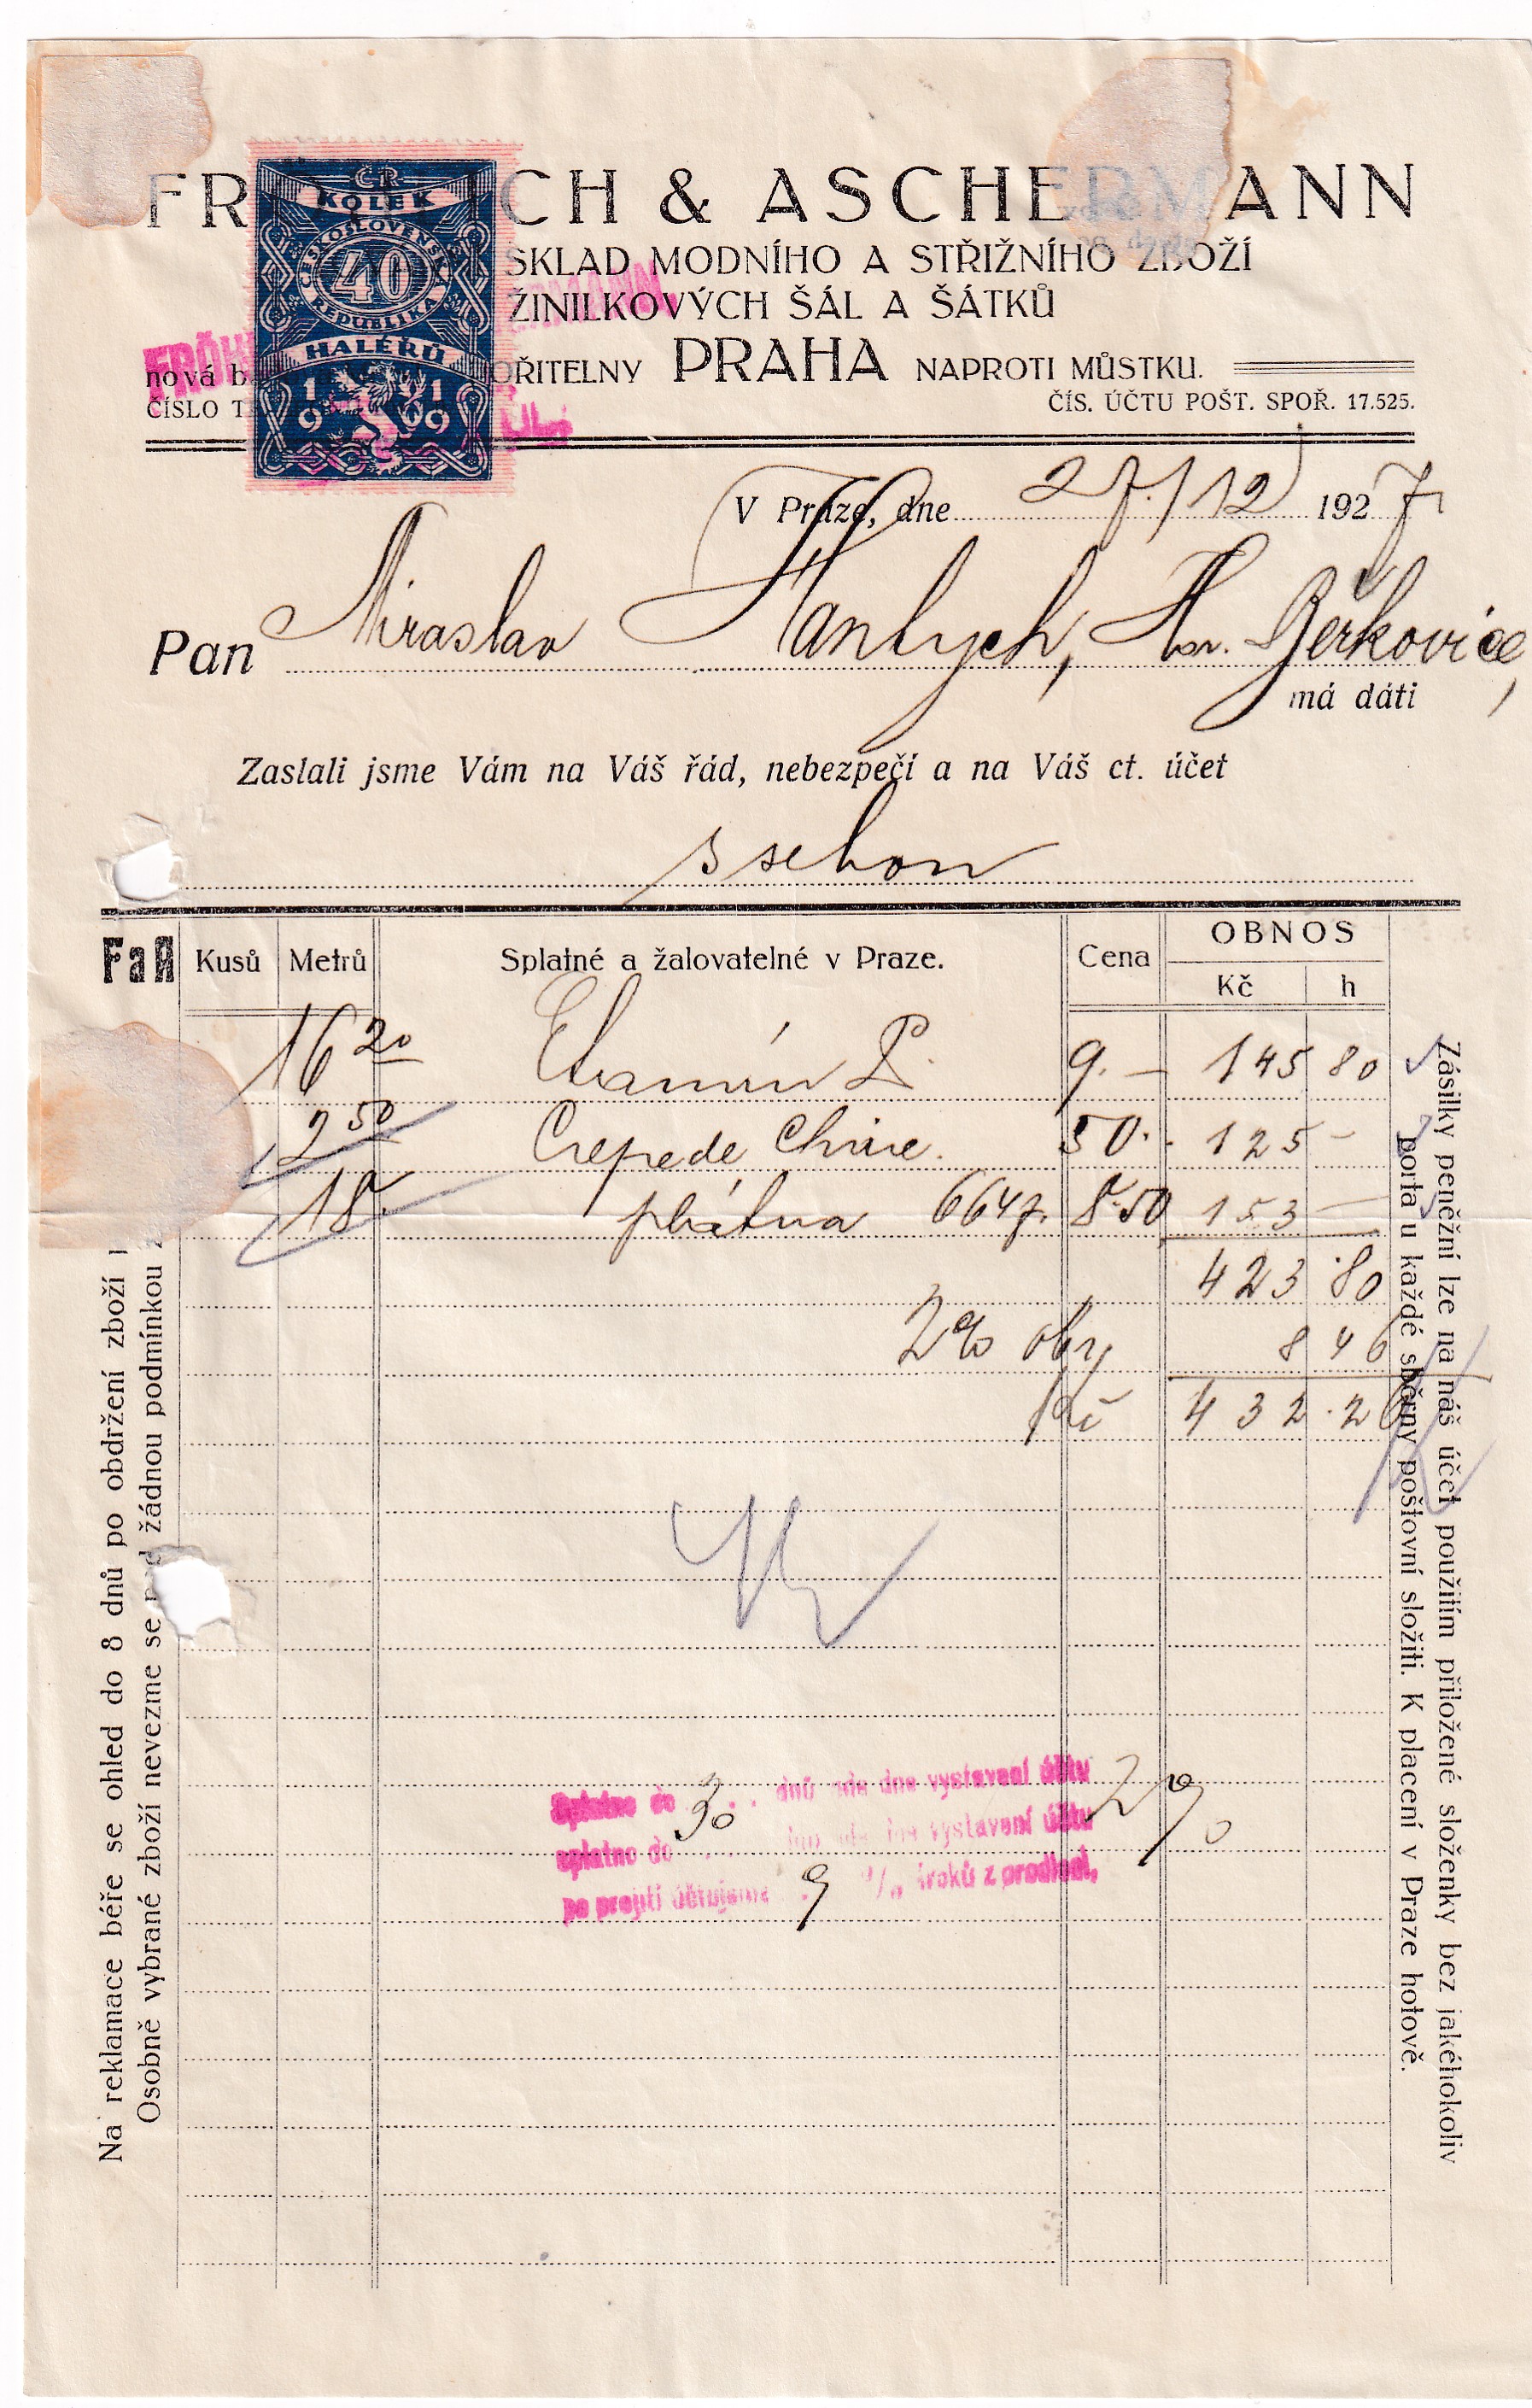 FR ICH & ASCHERMANN
SKLAD MODNÍHO A STŘIŽNÍHO ZBOŽÍ
ŽINILKOVÝCH ŠÁL A ŠÁTKŮ
nová b OŘITELNY PRAHA NAPROTI MŮSTKU.
ČÍSLO T ČÍS. ÚČTU POŠT. SPOŘ. 17.525.
ČR
KOLEK
ČESKOSLOVENSKÁ
40
REPUBLIKA
HALÉŘŮ
1919
V Praze, dne 27/12 1927
Pan Miroslav Hanlych, Hor. Beřkovice,
má dáti
Zaslali jsme Vám na Váš řád, nebezpečí a na Váš ct. účet
FaA Kusů Metrů Splatné a žalovatelné v Praze. Cena OBNOS
Kč h
16 20 Etamin P. 9.— 145 80
2 50 Crepe de Chine. 50.- 125 —
18. plátna 6647. 8.50 153 —
423 80
2% obr 8 46
Kč 432.26
splatno do 30 dnů ode dne vystavení účtu 2%
splatno do dnů ode dne vystavení účtu
po projití účtujeme 9 % úroků z prodlení,
Na reklamace béře se ohled do 8 dnů po obdržení zboží
Osobně vybrané zboží nevezme se pod žádnou podmínkou z
Zásilky peněžní lze na náš účet použitím přiložené složenky bez jakéhokoliv
porta u každé sběrny poštovní složiti. K placení v Praze hotově.